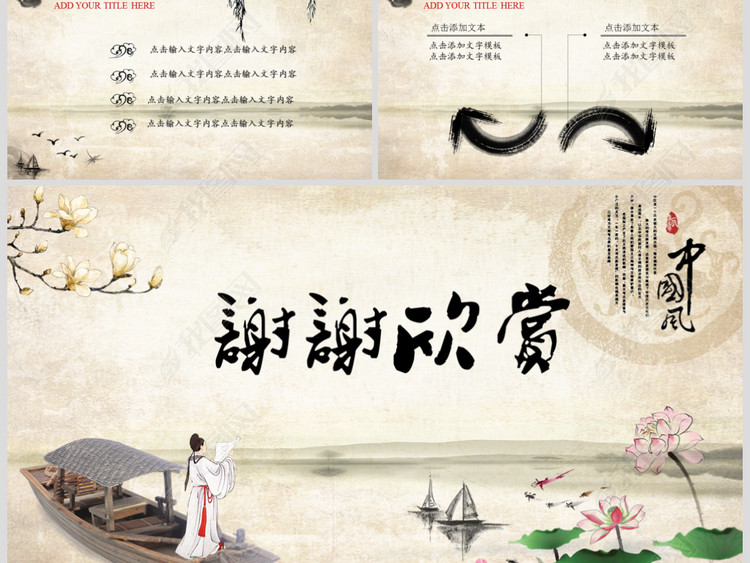 ADD YOUR TITLE HERE
点击输入文字内容点击输入文字内容
点击输入文字内容点击输入文字内容
点击输入文字内容点击输入文字内容
点击输入文字内容点击输入文字内容
ADD YOUR TITLE HERE
点击添加文本
点击添加文字模板
点击添加文字模板
点击添加文本
点击添加文字模板
点击添加文字模板
謝謝欣赏
中國风